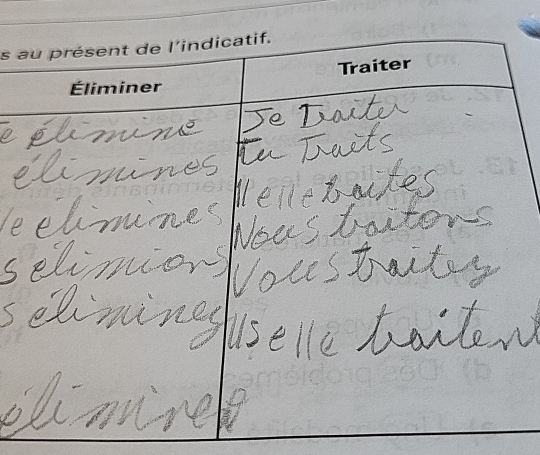 s au présent de l'indicatif.
Éliminer
Traiter
e élimine
élimines
le elimines
s élimions
s éliminez
éliminer
Je Traiter
Tu Traits
Il elle traites
Nous traitons
Vous traitez
Ils elle traitent